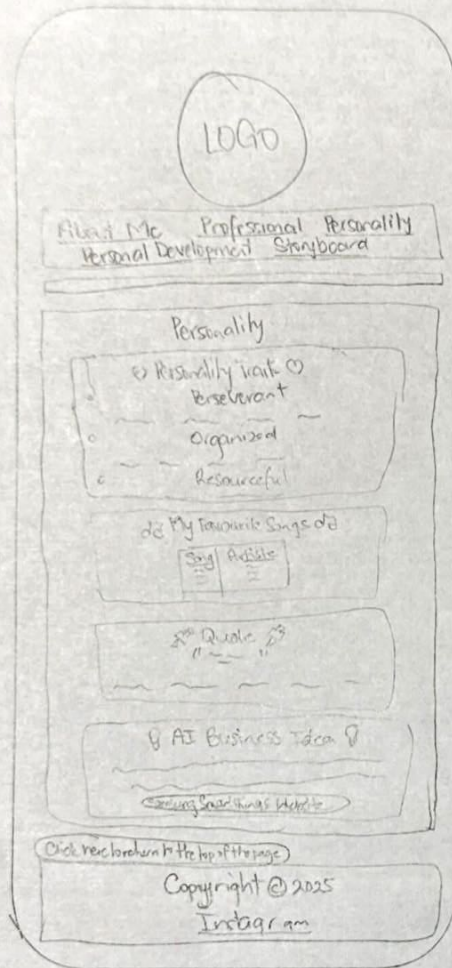 LOGO
About Me Professional Personality
Personal Development Storyboard
Personality
♡ Personality Traits ♡
Perseverant
Organized
Resourceful
My Favourite Songs
Song Artist
Quote
" "
AI Business Idea
Samsung SmartThings Website
Click here to return to the top of the page
Copyright © 2025
Instagram